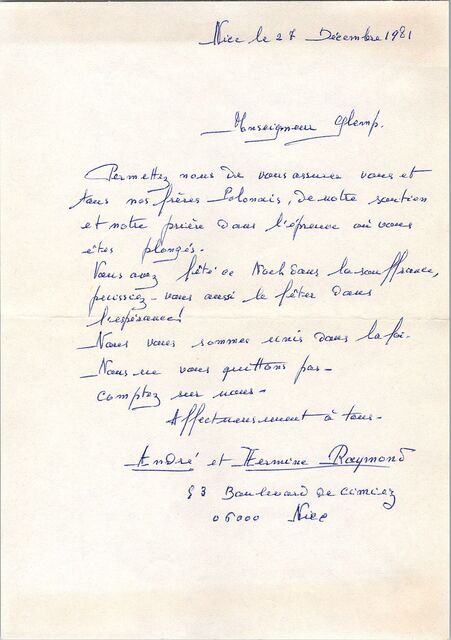 Nice le 27 Décembre 1981
Monseigneur Glemp.
Permettez nous de vous assurer vous et
tous nos frères Polonais, de notre soutien
et notre prière dans l'épreuve où vous
êtes plongés.
Vous avez fêté ce Noël dans la souffrance,
puissiez-vous aussi le fêter dans
l'espérance!
Nous vous sommes unis dans la foi.
Nous ne vous quittons pas-
comptez sur nous-
Affectueusement à tous-
André et Hermine Raymond
53 Boulevard de Cimiez
06000 Nice